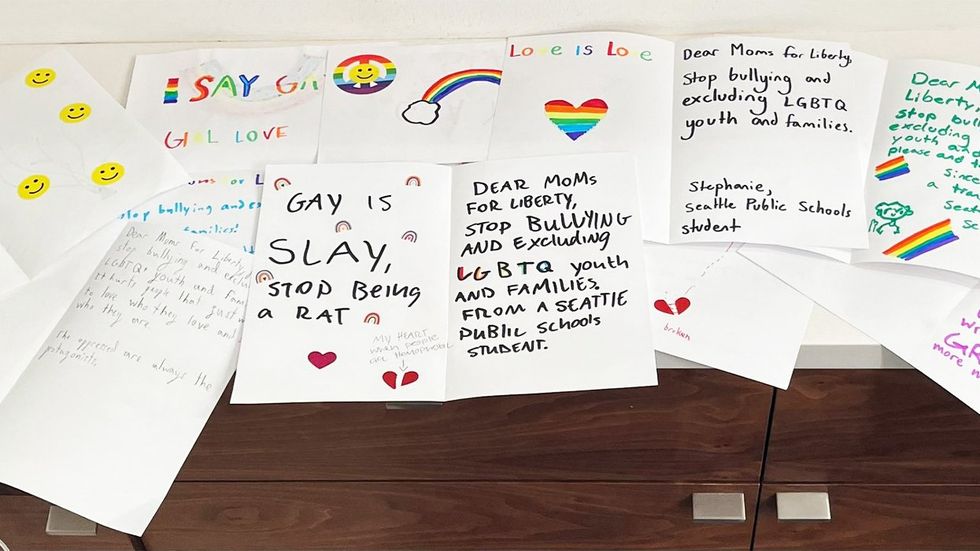 I SAY GA
GIRL LOVE
Love is Love
Dear Moms for Liberty,
Stop bullying and
excluding LGBTQ
youth and families.
Stephanie,
Seattle Public Schools
student
Dear M
Liberty,
stop b
excluding
youth an
please and th
Since
a tra
Seat
Sc
oms for L
Stop bullying and ex
families!
Dear Moms For Liberty,
bullying and exclud
LGBTQ+ youth and fam
It hurts people that just w
to love who they love and
who they are.
The oppressed are always the
protagonists.
GAY IS
SLAY,
STOP Being
a RAT
MY HEART
when people
are Homophobic
DEAR MOMS
FOR LIBERTY,
STOP BULLYING
AND Excluding
LGBTQ youth
AND FAMILIES.
FROM A SEATTLE
PUBLIC SCHOOLS
STUDENT.
broken
wr
GR
more m